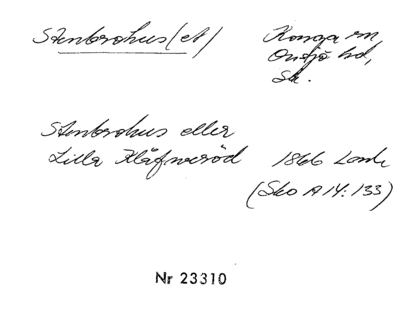 Stenbrohus(et) Konga sn,
Onsjö hd,
Sk.
Stenbrohus eller
Lilla Kläfveröd 1866 Lantm
(Sko A 14:133)
Nr 23310